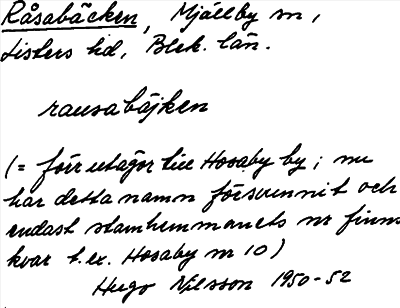 Råsabäcken, Mjällby sn,
Listers hd, Blek. län.
rausabäjken
(= förr utägor till Hosaby by; nu
har detta namn försvunnit och
endast stamhemmanets nr finns
kvar t.ex. Hosaby nr 10)
Hugo Nilsson 1950-52